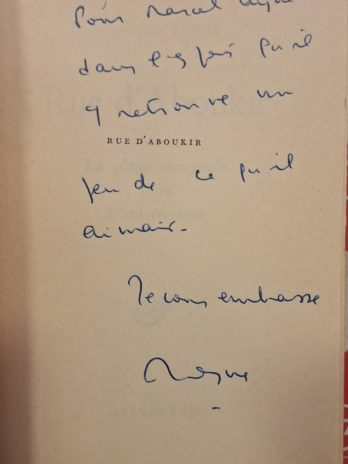 Pour Pascal
dans l'espoir qu'il
y retrouve un
RUE D'ABOUKIR
peu de ce qu'il
aimait.
Je vous embrasse